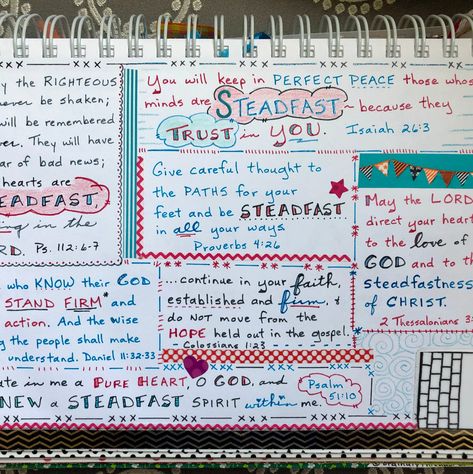 y the RIGHTEOUS
ever be shaken;
will be remembered
er. They will have
ar of bad news;
hearts are
EADFAST,
ing in the
RD. Ps. 112:6-7
You will keep in PERFECT PEACE those whos
minds are STEADFAST ~ because they
TRUST in YOU. Isaiah 26:3
Give careful thought to
the PATHS for your
feet and be STEADFAST
in all your ways
Proverbs 4:26
May the LORD
direct your hear
to the love of
GOD and to th
steadfastness
of CHRIST.
2 Thessalonians 3:
who KNOW their GOD
STAND FIRM* and
action. And the wise
g the people shall make
understand. Daniel 11:32-33
...continue in your faith,
established and firm, &
do NOT move from the
HOPE held out in the gospel.
Colossians 1:23
ate in me a PURE HEART, O GOD, and
NEW a STEADFAST SPIRIT within me.
Psalm
51:10